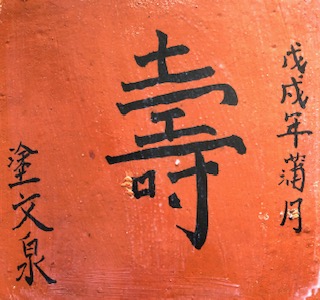 戊戌年蒲月
壽
塗文泉